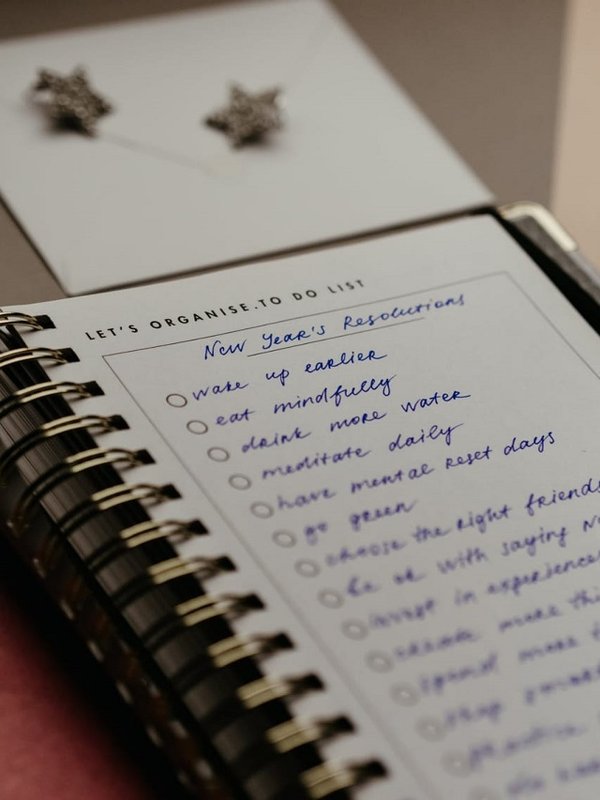 LET'S ORGANISE.TO DO LIST
New Year's Resolutions
wake up earlier
eat mindfully
drink more water
meditate daily
have mental reset days
go green
choose the right friends
be ok with saying N
invest in experiences
create more thi
spend more t
stop
practice